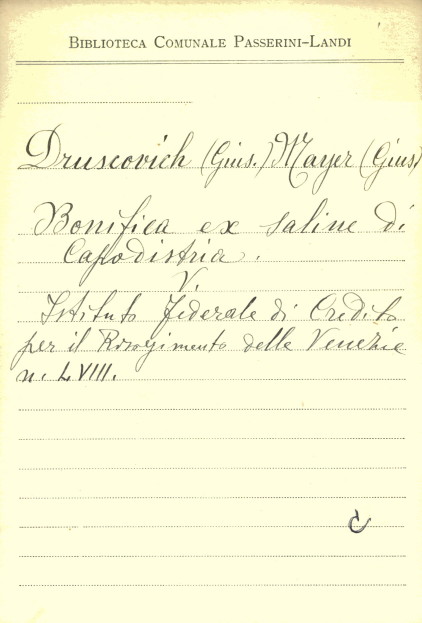 BIBLIOTECA COMUNALE PASSERINI-LANDI
Druscovich (Gius.) Mayer (Gius)
Bonifica ex saline di
Capodistria.
V.
Istituto Federale di Credito
per il Risorgimento delle Venezie
n. LVIII.
C